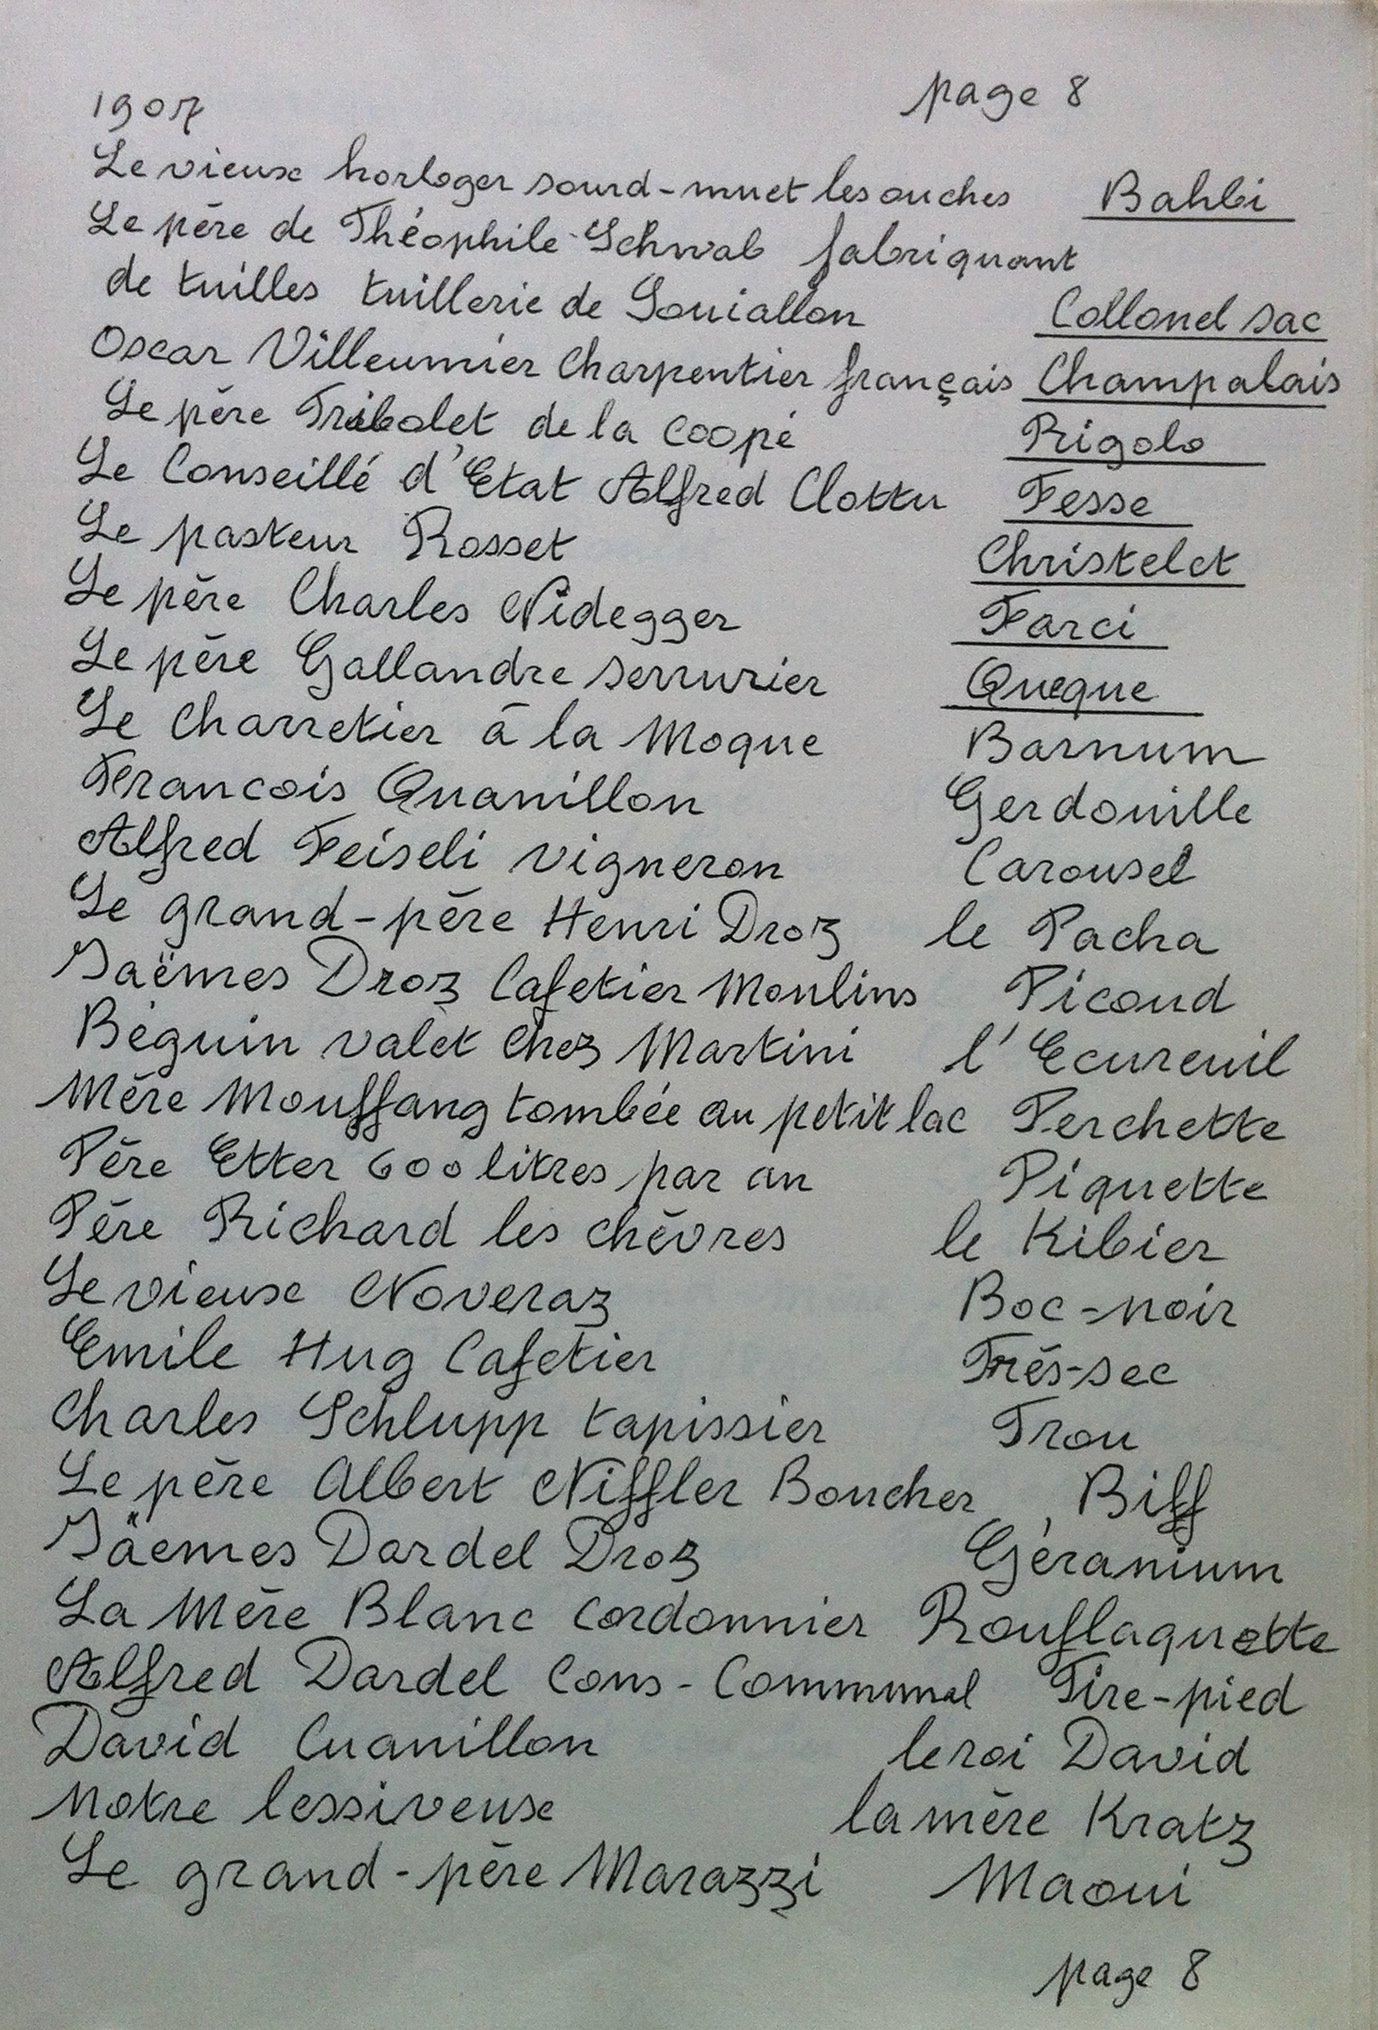 1907 page 8
Le vieux horloger sourd-muet les ouches Bahbi
Le père de Théophile Schwab fabriquant
de tuilles tuillerie de Souiallon Collonel sac
Oscar Villeumier Charpentier français Champalais
Le père Tribolet de la coopé Rigolo
Le Conseillé d'Etat Alfred Clottu Fesse
Le pasteur Rosset Christelet
Le père Charles Nidegger Farci
Le père Gallandre serrurier Queque
Le Charretier à la Moque Barnum
Francois Quanillon Gerdouille
Alfred Feiseli vigneron Carousel
Le grand-père Henri Droz le Pacha
Jaëmes Droz Cafetier Moulins Picoud
Béguin valet Chez Martini l'Ecureuil
Mère Mouffang tombée au petit lac Perchette
Père Etter 600 litres par an Piquette
Père Richard les chèvres le Kibier
Le vieux Noveraz Boc-noir
Emile Hug Cafetier Très-sec
Charles Schlupp tapissier Trou
Le père Albert Niffler Boucher Biff
Jäemes Dardel Droz Géranium
La Mère Blanc Cordonnier Rouflaquette
Alfred Dardel Cons-Communal Tire-pied
David Cuanillon le roi David
Notre lessiveuse la mère Kratz
Le grand-père Marazzi Maoui
page 8